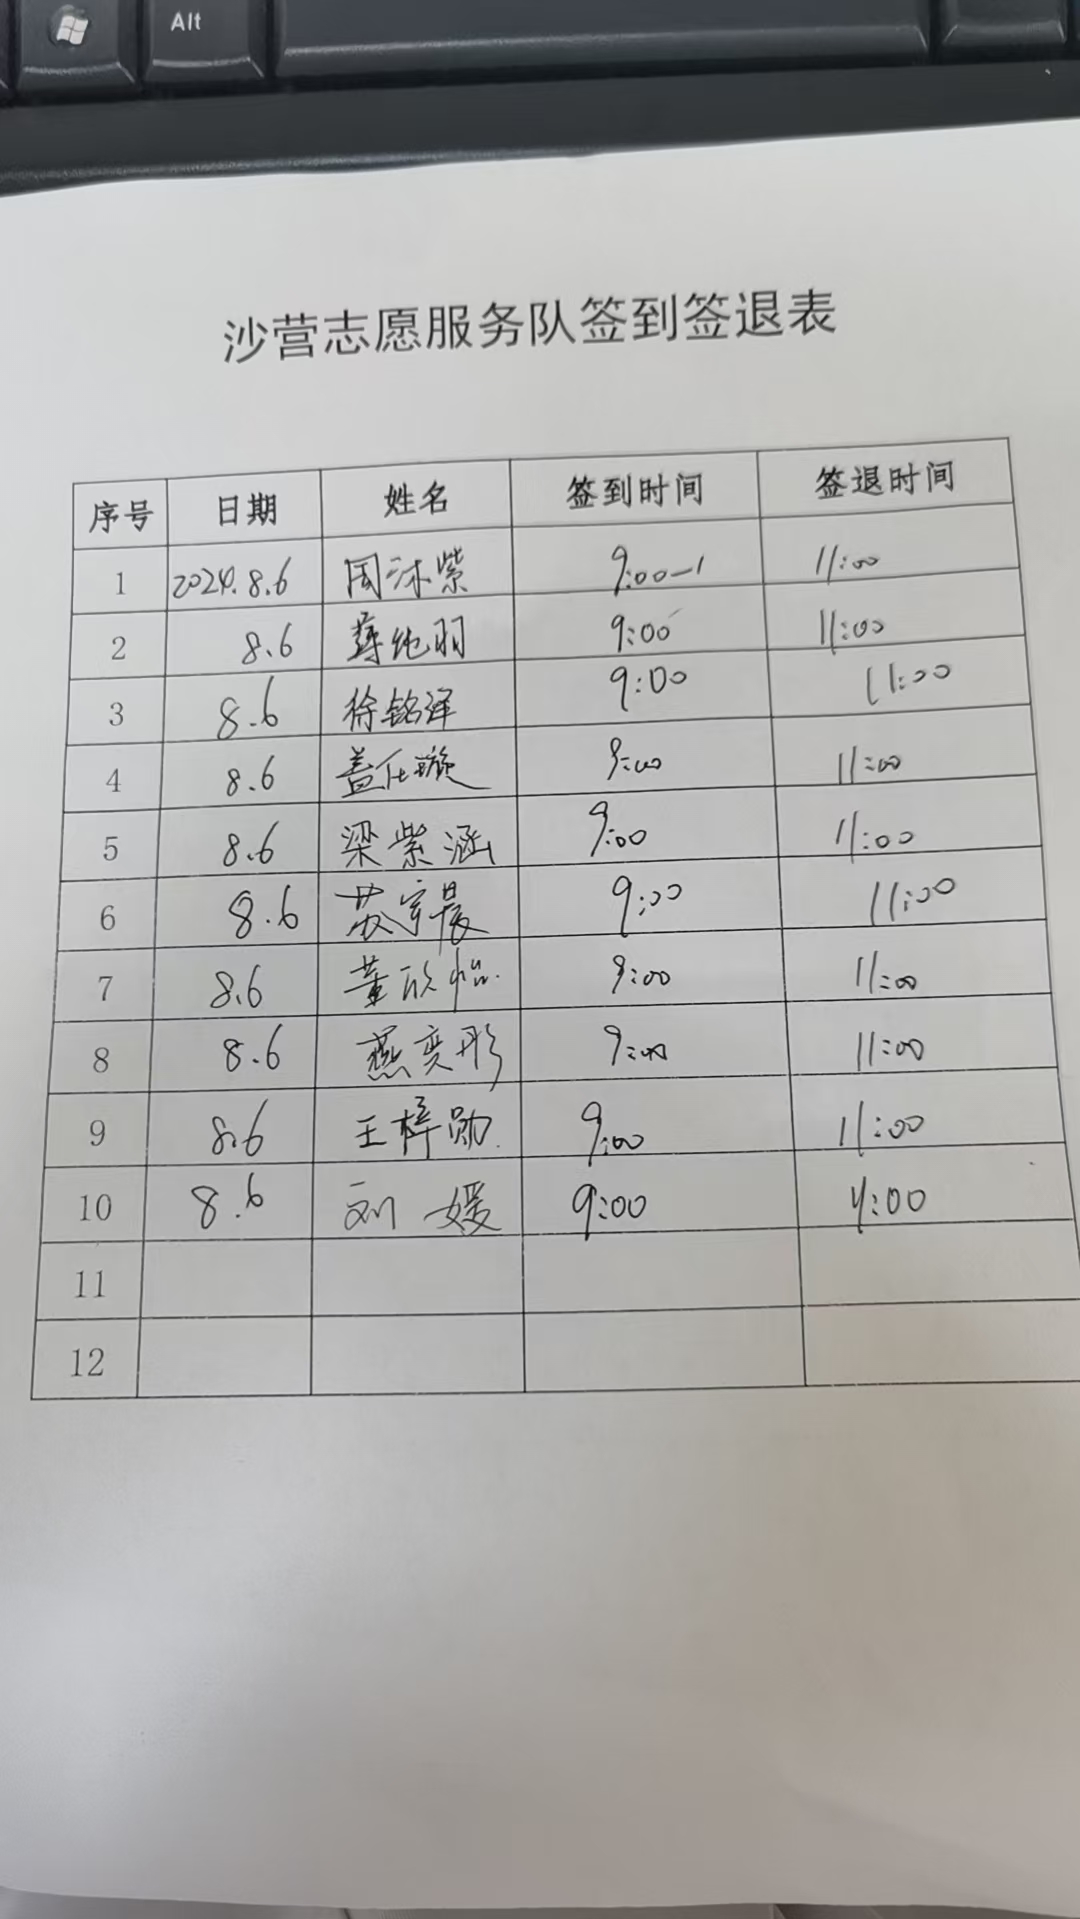 Alt
沙营志愿服务队签到签退表
序号 日期 姓名 签到时间 签退时间
1 2024.8.6 周沐紫 9:00-1 11:00
2 8.6 薛纯羽 9:00 11:00
3 8.6 徐铭泽 9:00 11:00
4 8.6 盖仕璇 9:00 11:00
5 8.6 梁紫涵 9:00 11:00
6 8.6 苏宇晨 9:00 11:00
7 8.6 董欣怡 9:00 11:00
8 8.6 燕奕彤 9:00 11:00
9 8.6 王梓勋 9:00 11:00
10 8.6 刘媛 9:00 11:00
11
12